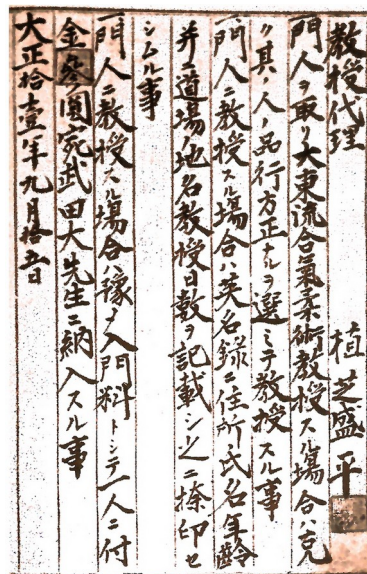 教授代理　植芝盛平
門人ヲ取リ大東流合氣柔術教授スル場合ハ克
ク其ノ人ノ品行方正ナルヲ選ミテ教授スル事
一門人ニ教授スル場合ハ英名録ニ住所氏名年齢
并ニ道場ノ地名教授日数ヲ記載シ之ニ捺印セ
シムル事
一門人ニ教授スル場合ハ豫メ入門料トシテ一人ニ付
金参圓宛武田大先生ニ納入スル事
大正拾壹年九月拾五日